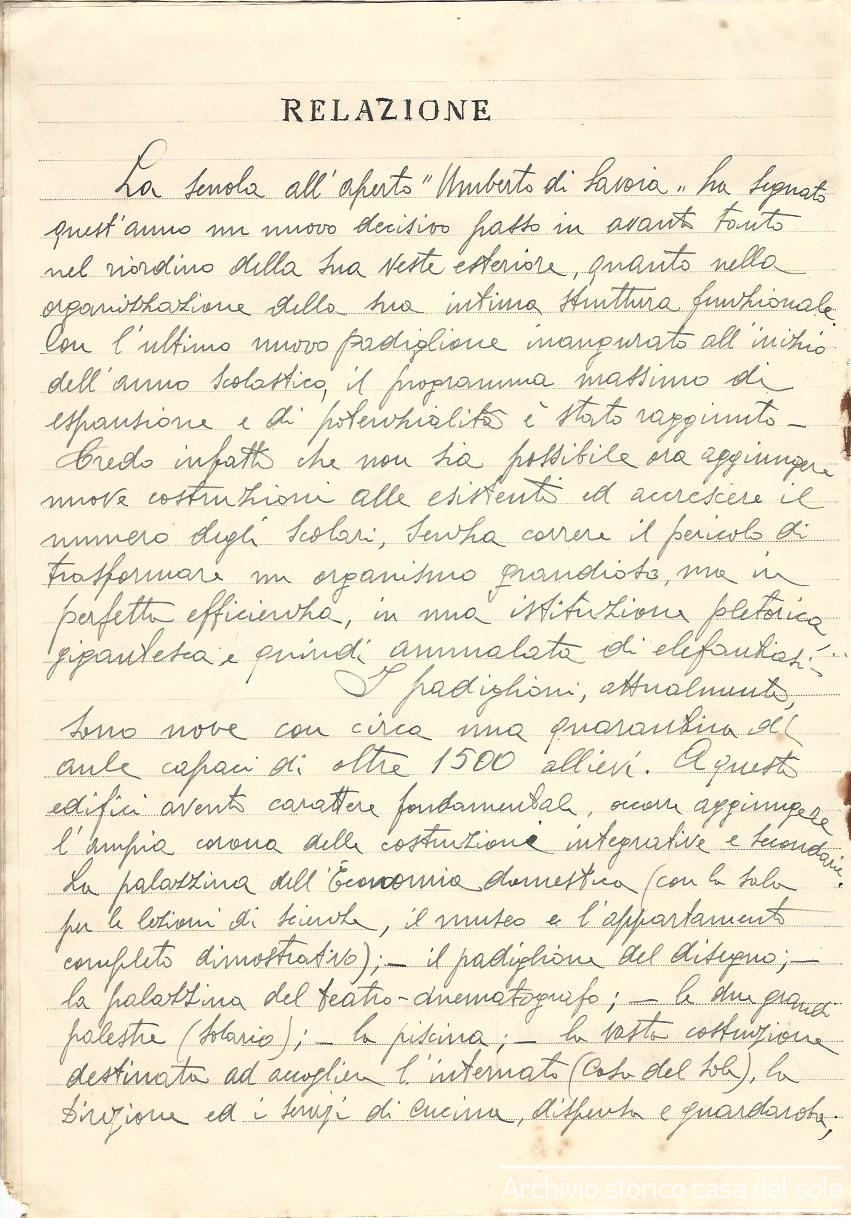 RELAZIONE
La scuola all'aperto "Umberto di Savoia" ha segnato
quest'anno un nuovo decisivo passo in avanti tanto
nel riordino della sua veste esteriore, quanto nella
organizzazione della sua intima struttura funzionale.
Con l'ultimo nuovo padiglione inaugurato all'inizio
dell'anno scolastico, il programma massimo di
espansione e di potenzialità è stato raggiunto –
Credo infatti che non sia possibile ora aggiungere
nuove costruzioni alle esistenti ed accrescere il
numero degli scolari, senza correre il pericolo di
trasformare un organismo grandioso, ma in
perfetta efficienza, in una istituzione pletorica
gigantesca e quindi ammalata di elefantiasi –
I padiglioni, attualmente,
sono nove con circa una quarantina di
aule capaci di oltre 1500 allievi. A questi
edifici aventi carattere fondamentale, occorre aggiungere
l'ampia corona delle costruzioni integrative e secondarie.
La palazzina dell'Economia domestica (con la sala
per le lezioni di scienze, il museo e l'appartamento
completo dimostrativo); – il padiglione del disegno; –
la palazzina del teatro-cinematografo; – le due grandi
palestre (solario); – la piscina; – la vasta costruzione
destinata ad accogliere l'internato (Casa del Sole), la
Direzione ed i servizi di cucina, dispensa e guardaroba;
Archivio storico casa del sole